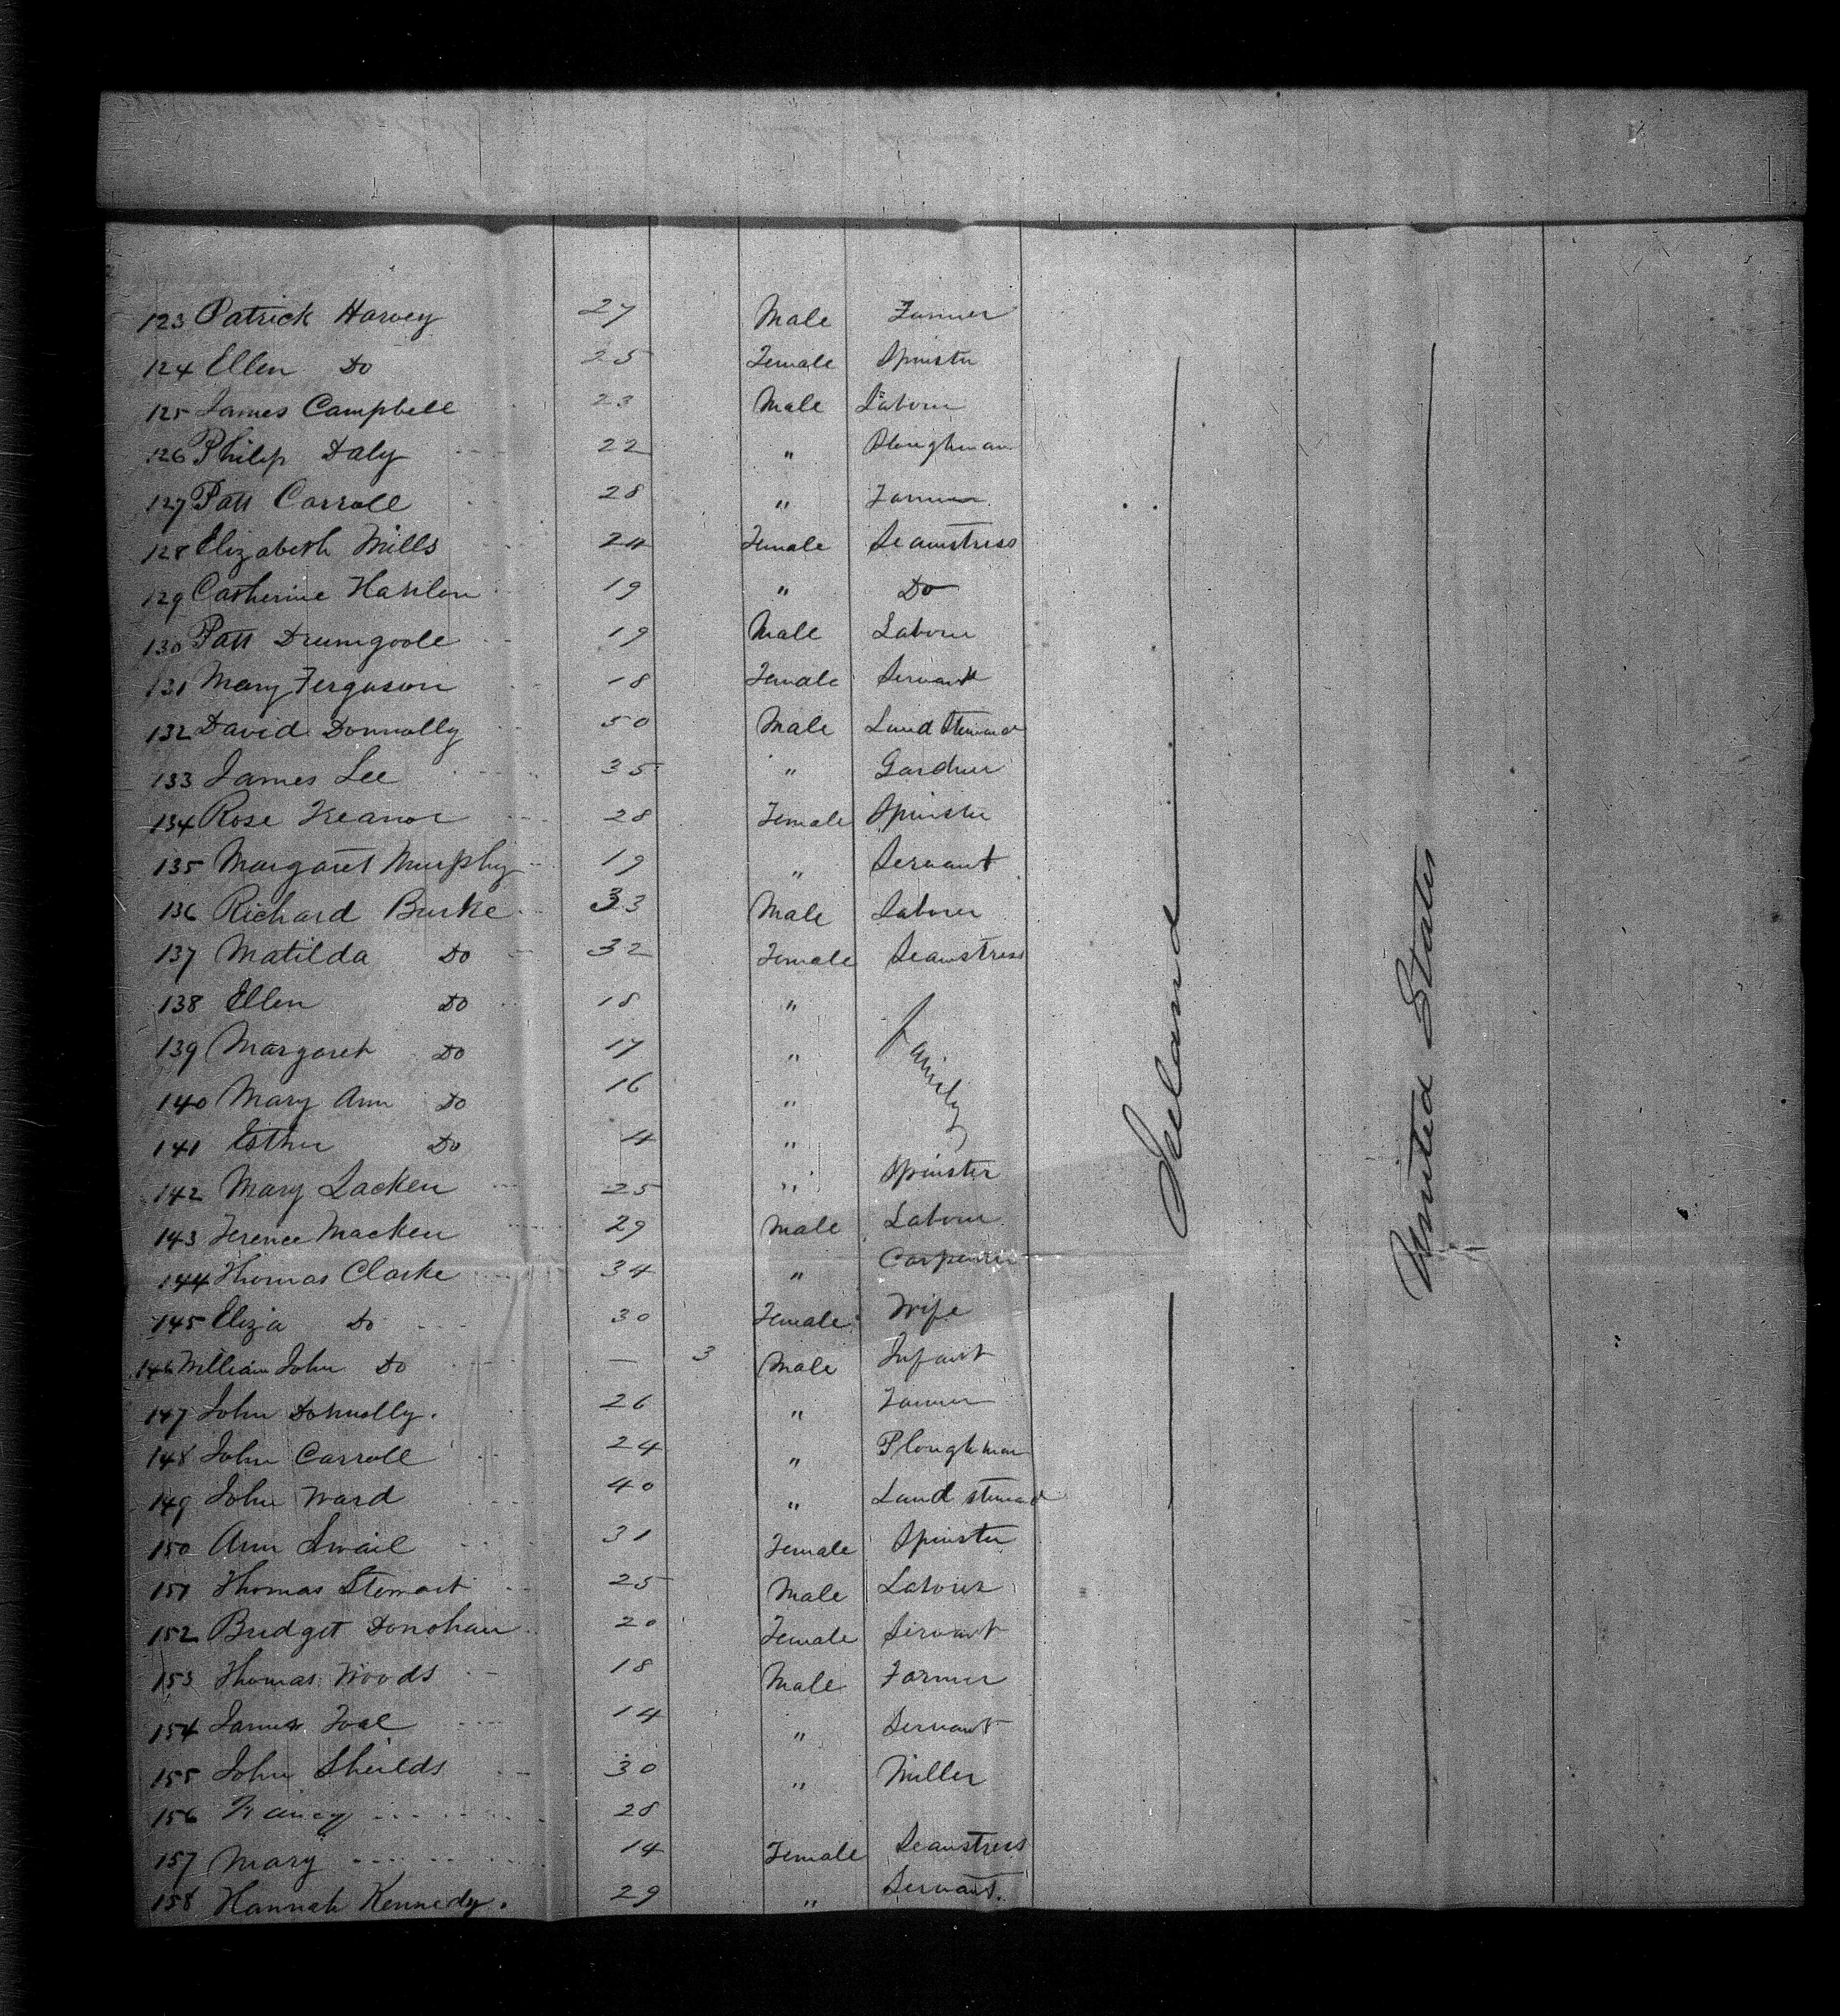 123 Patrick Harvey 27 Male Farmer
124 Ellen Do 25 Female Spinster
125 James Campbell 23 Male Laborer
126 Philip Daly 22 " Ploughman
127 Patt Carroll 28 " Farmer
128 Elizabeth Mills 24 Female Seamstress
129 Catherine Hanlon 19 " Do
130 Patt Drumgoole 19 Male Laborer
131 Mary Ferguson 18 Female Servant
132 David Donnolly 50 Male Land Steward
133 James Lee 35 " Gardner
134 Rose 28 Female Spinster
135 Margaret Murphy 19 " Servant
136 Richard Burke 33 Male Laborer
137 Matilda Do 32 Female Seamstress
138 Ellen Do 18 "
139 Margaret Do 17 " family
140 Mary Ann Do 16 "
141 Esther Do 4 "
142 Mary Lacken 25 " Spinster
143 Terence Macken 29 Male Laborer
144 Thomas Clarke 34 " Carpenter
145 Eliza Do 30 Female Wife
146 William John Do — 3 Male Infant
147 John Donnolly. 26 " Farmer
148 John Carroll 24 " Ploughman
149 John Ward 40 " Land Steward
150 Ann Swail 31 Female Spinster
151 Thomas Stewart 25 Male Laborer
152 Bridget Donohau 20 Female Servant
153 Thomas Woods 18 Male Farmer
154 James Toal 14 " Servant
155 John Sheilds 30 " Miller
156 Nancy 28
157 Mary 14 Female Seamstress
158 Hannah Kennedy. 29 " Servant.
Ireland
United States